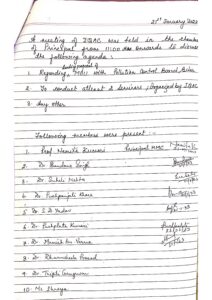 21st January 2023
A meeting of IQAC was held in the chamber
of Principal from 11:00 am onwards to discuss
the following agenda :
1. Regarding MOU with Pollution Control Board, Bihar
2. To conduct atleast 2 seminars, organized by IQAC
3. Any other
Following members were present :-
1. Prof. Namita Kumari Principal
2. Dr Bandana Singh
3. Dr Suheli Mehta
4. Dr Pushpanjali Khare
5. Dr S D Yadav
6. Dr Pushplata Kumari
7. Dr Manish Kr Verma
8. Dr Dharmshila Prasad
9. Dr Tripti Gangwar
10 Ms Shreya